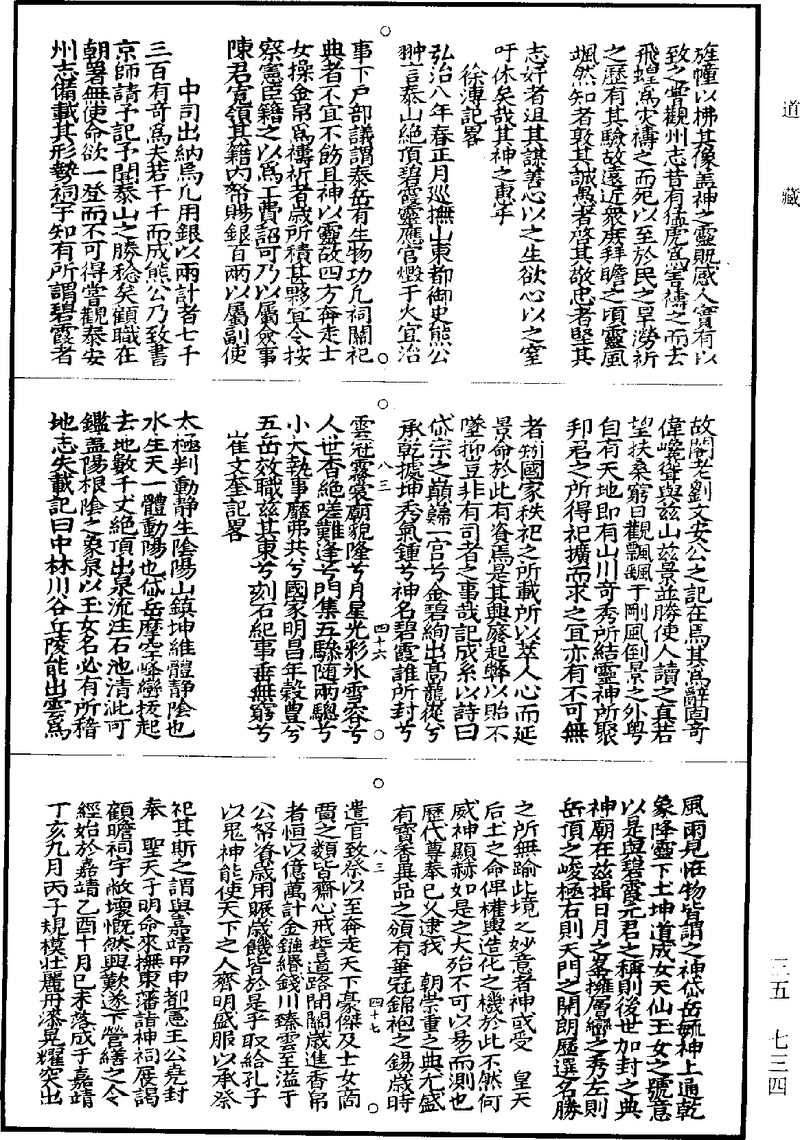 道藏
旌幢以拂其像盖神之靈貺感人實有以
致之嘗觀州志昔有猛虎為害禱之而去
飛蝗為灾禱之而死以至於民之旱澇祈
之歷有其驗故遠近衆庶拜瞻之頃靈風
颯然知者敦其誠愚者啓其敬忠者堅其
志奸者沮其謀善心以之生欲心以之窒
吁休矣哉其神之惠乎
徐溥記畧
弘治八年春正月巡撫山東都御史熊公
翀言泰山絶頂碧霞靈應官燬于火宜治
事下戶部議謂泰岳有生物功凡祠關祀
典者不宜不飭且神以靈故四方奔走士
女操金帛為禱祈者歲所積甚夥宜令按
察憲臣籍之以為工費詔可乃以屬僉事
陳君寬領其籍内帑賜銀百兩以屬副使
中司出納焉凡用銀以兩計者七千
三百有奇為夫若干千而成熊公乃致書
京師請予記予聞泰山之勝稔矣顧職在
朝署無使命欲一登而不可得嘗觀泰安
州志備載其形勢祠宇知有所謂碧霞者
故閣老劉文安公之記在焉其為辭固奇
偉巉聳與兹山兹景並勝使人讀之真若
望扶桑窮日觀飄飄于剛風倒景之外粤
自有天地即有山川奇秀所結靈神所聚
邦君之所得祀擴而求之宜亦有不可無
者矧國家秩祀之所載所以萃人心而延
景命於此有資焉是其興廢起弊以貽不
墜抑豈非有司者之事哉記成系以詩曰
岱宗之巔歸一宫兮金碧絢出高巃嵷兮
承乾據坤秀氣鍾兮神名碧霞誰所封兮
八三 四十六
雲冠霧裳廟貌隆兮月星光彩氷雪容兮
人世杳絶嗟難逢兮門集五騄随兩驄兮
小大執事靡弗共兮國家明昌年穀豊兮
五岳效職兹其東兮刻石紀事垂無窮兮
崔文奎記畧
太極判動静生陰陽山鎮坤維體静陰也
水生天一體動陽也岱岳摩空峰巒拔起
去地數千丈絶頂出泉流注石池清泚可
鑑盖陽根陰之象泉以玉女名必有所稽
地志失載記曰中林川谷丘陵能出雲為
風雨見怪物皆謂之神岱岳毓神上通乾
象降靈下土坤道成女天仙玉女之號意
以是與碧霞元君之稱則後世加封之典
神廟在兹揖日月之峯擁層巒之秀左則
岳頂之峻極右則天門之開朗歷選名勝
之所無踰此境之妙意者神或受　皇天
后土之命俾權輿造化之機於此不然何
威神顯赫如是之大殆不可以易而測也
歷代尊奉已乆逮我　朝崇重之典尤盛
有寳香異品之頒有華冠錦袍之錫歲時
八三 四十七
遣官致祭以至奔走天下豪傑及士女商
賈之類皆齋心戒誓道路閧闐歲進香帛
者恒以億萬計金銀緡錢川臻雲至溢于
公帑眷歲用賑歲饑皆於是乎取給孔子
以鬼神能使天下之人齊明盛服以承祭
祀其斯之謂與嘉靖甲申都憲王公堯封
奉　聖天子明命來撫東藩詣神祠展謁
顧瞻祠宇敝壞慨然興歎遂下營繕之令
經始於嘉靖乙酉十月已未落成于嘉靖
丁亥九月丙子規模壯麗丹漆晃耀突出
三五　七三四